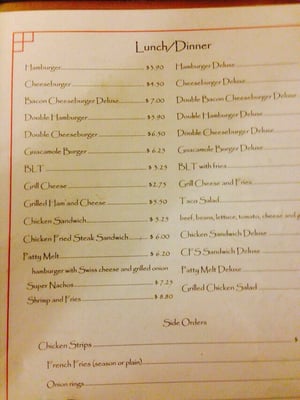 Lunch/Dinner
Hamburger $3.90
Cheeseburger $4.50
Bacon Cheeseburger Deluxe $7.00
Double Hamburger $5.90
Double Cheeseburger $6.50
Guacamole Burger $6.25
BLT $5.25
Grill Cheese $2.75
Grilled Ham and Cheese $5.50
Chicken Sandwich $5.25
Chicken Fried Steak Sandwich $6.00
Patty Melt $6.20
hamburger with Swiss cheese and grilled onion
Super Nachos $7.25
Shrimp and Fries $8.80
Hamburger Deluxe
Cheeseburger Deluxe
Double Bacon Cheeseburger Deluxe
Double Hamburger Deluxe
Double Cheeseburger Deluxe
Guacamole Burger Deluxe
BLT with fries
Grill Cheese and Fries
Taco Salad
beef, beans, lettuce, tomato, cheese and
Chicken Sandwich Deluxe
CFS Sandwich Deluxe
Patty Melt Deluxe
Grilled Chicken Salad
Side Orders
Chicken Strips $
French Fries (season or plain)
Onion rings